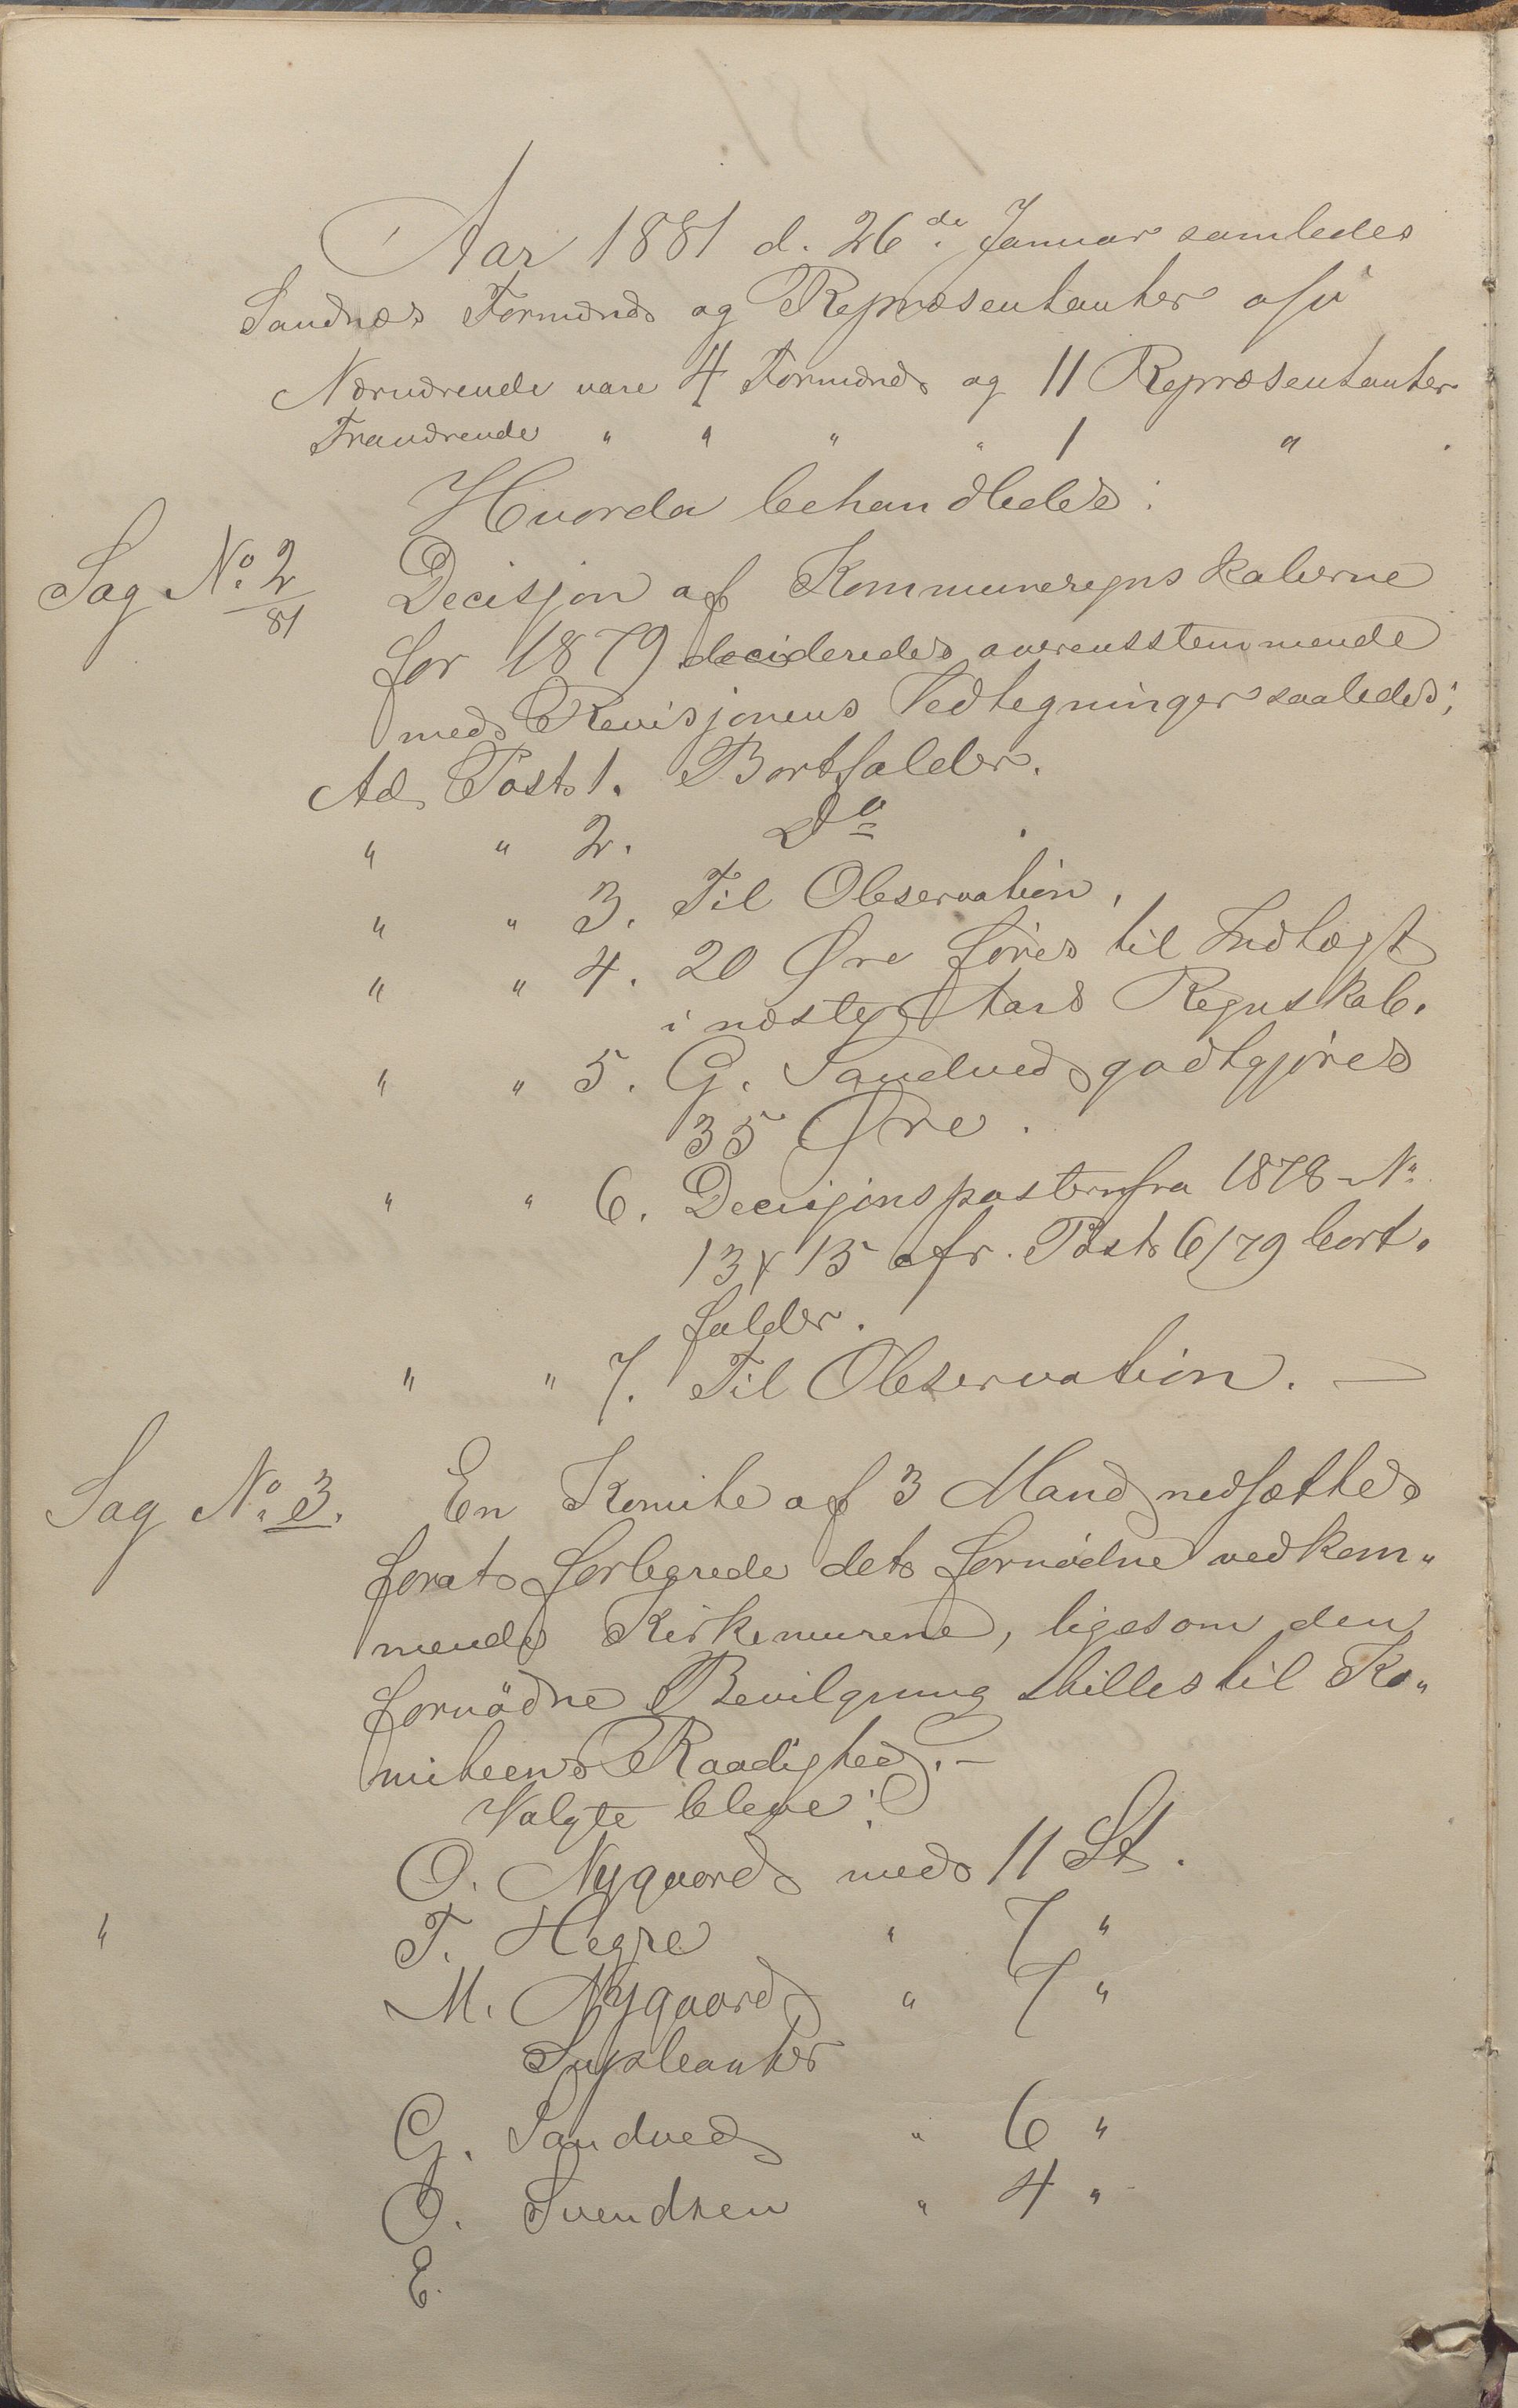 Aar 1881 d. 26de Januar samledes
Sandnæs Formænd og Repræsentanter ofv
Nærværende vare 4 Formænd og 11 Repræsentanter
Fraværende " " " " 1 " .
Hvorda behandledes:
Sag No. 2/81 Decisjon af Kommuneregnskaberne
for 1879 decideredes overensstemmende
med Revisjonens Vedtegninger saaledes;
Ad Post 1. Bortfalder.
" " 2. Do .
" " 3. Til Observation.
" " 4. 20 Øre føres til Indtægt
i næste Aars Regnskab.
" " 5. G. Sandved godtgjøres
35 Øre.
" " 6. Decisjonsposterne fra 1878 No.
13 & 15 cfr. Post 6/79 bort-
falder.
" " 7. Til Observation. —
Sag No. 3. En Komite af 3 Mand nedsættes
forat forberede det fornødne vedkom-
mende Kirkemurene, ligesom den
fornødne Bevilgning stilles til Ko-
miteens Raadighed. —
Valgte bleve:
O. Nygaard med 11 St.
" T. Hegre " 7 "
M. Nygaard " 7 "
Supleanter
G. Sandved " 6 "
O. Svendsen " 4 "
E.